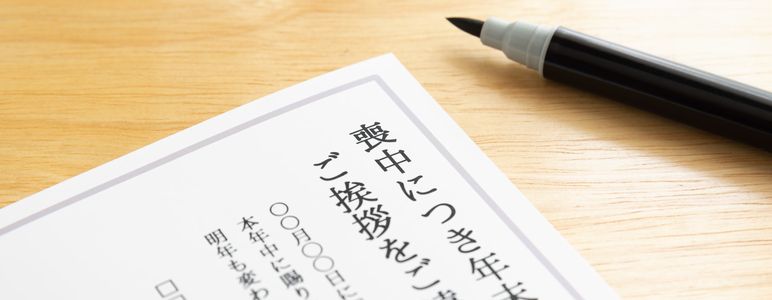 喪中につき年末
ご挨拶をご
〇〇月〇〇日に
本年中に賜り
明年も変わ
□